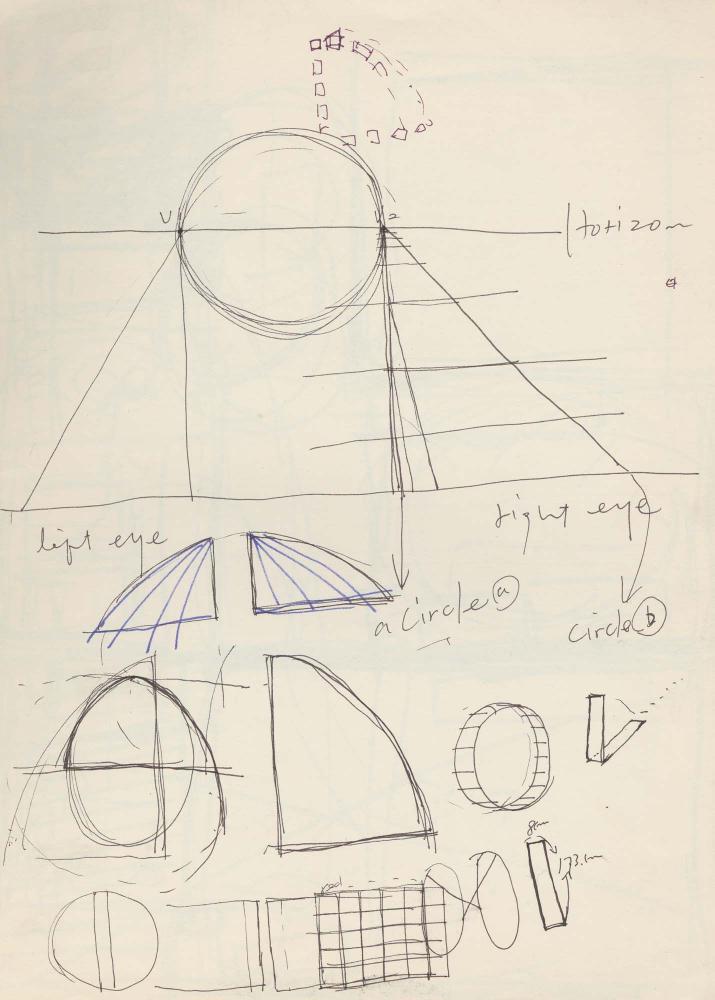 V
V2
Horizon
left eye
right eye
a circle ⓐ
circle ⓑ
8cm
173.cm